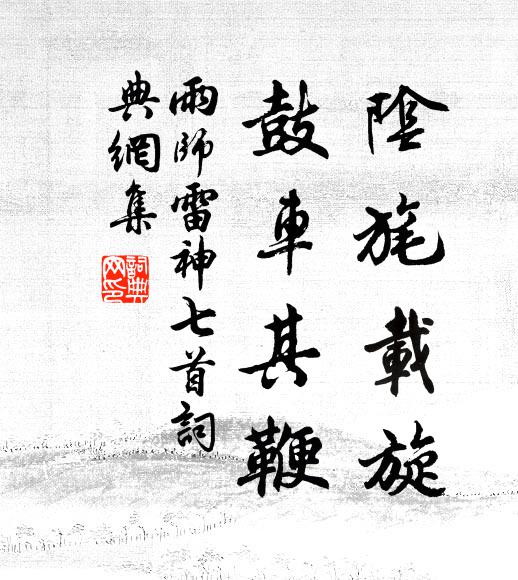 陰旄載旋
鼓車其鞭
雨師雷神七首詞
典網集
詞典網印